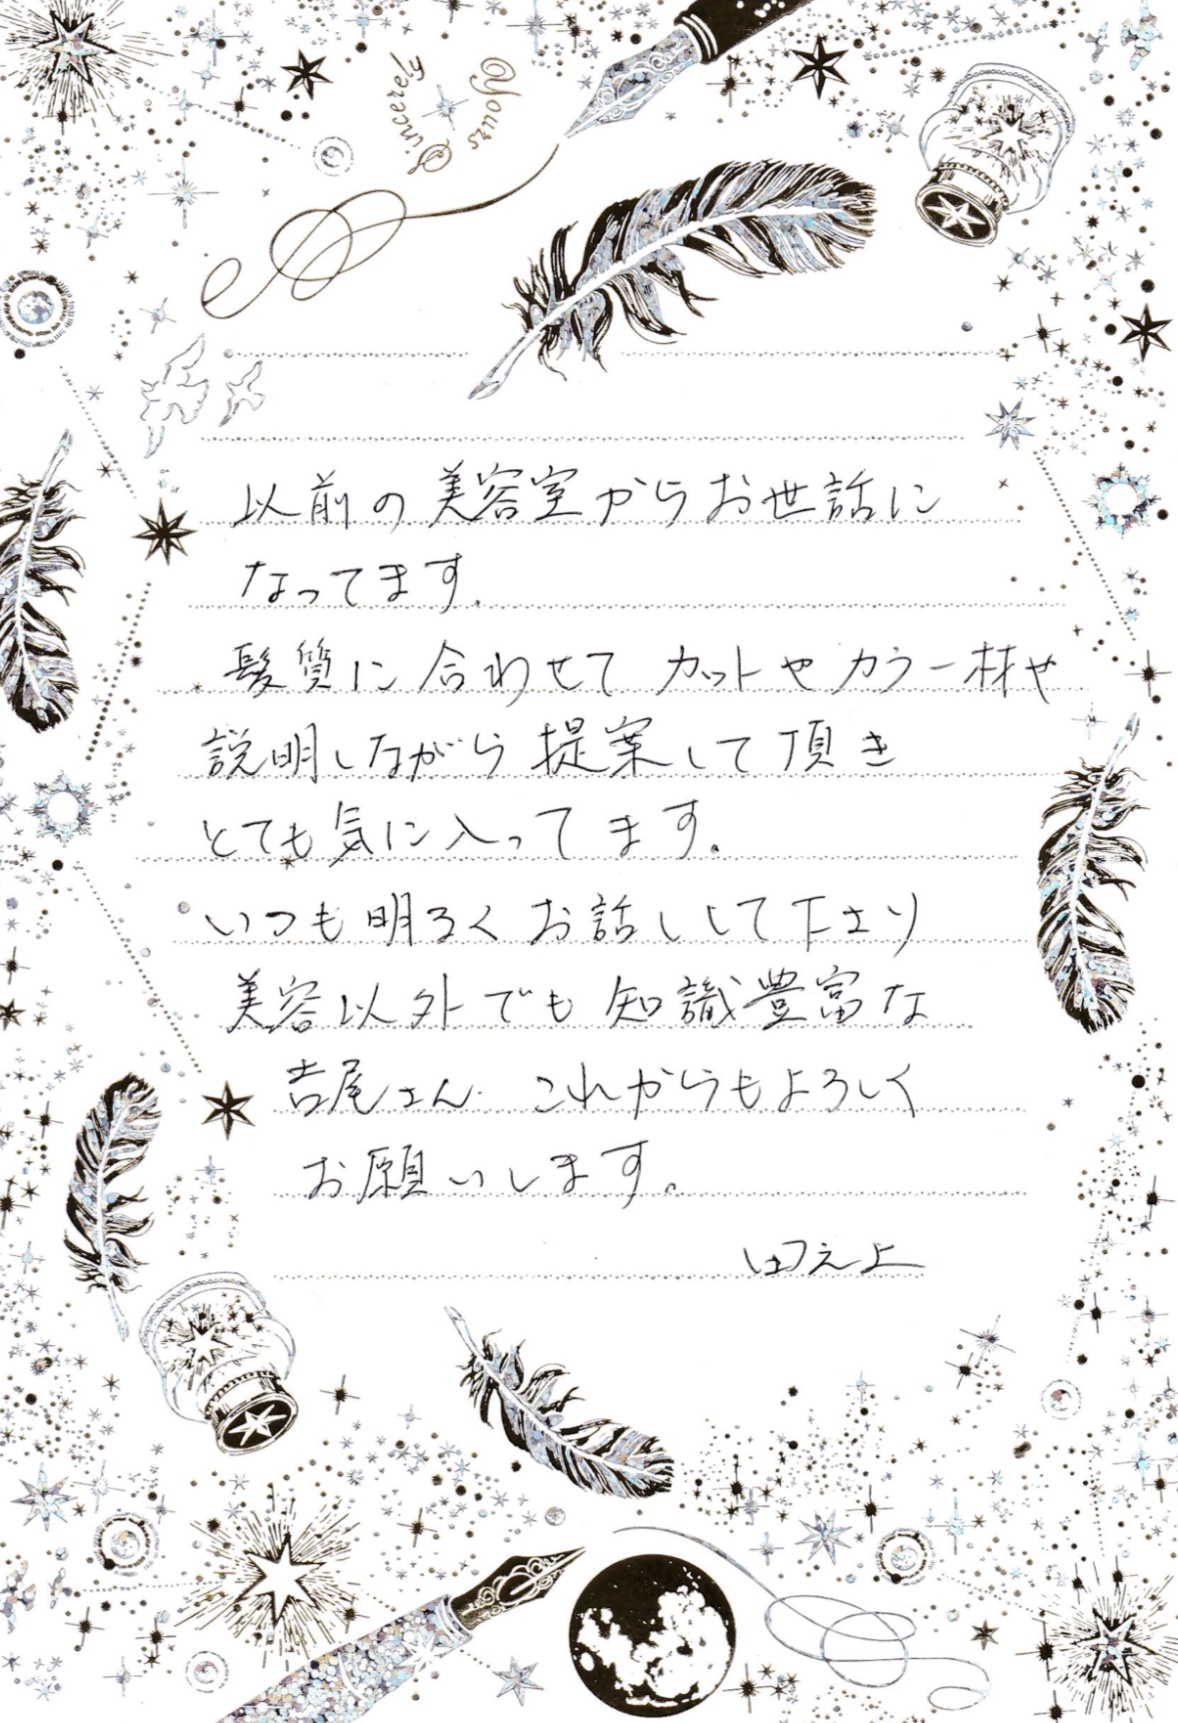 Yours
Sincerely
以前の美容室からお世話に
なってます。
髪質に合わせて カットや カラー材や
説明しながら 提案して頂き
とても気に入ってます。
いつも明るく お話しして下さり
美容以外でも 知識豊富な
吉尾さん. これからもよろしく
お願いします。